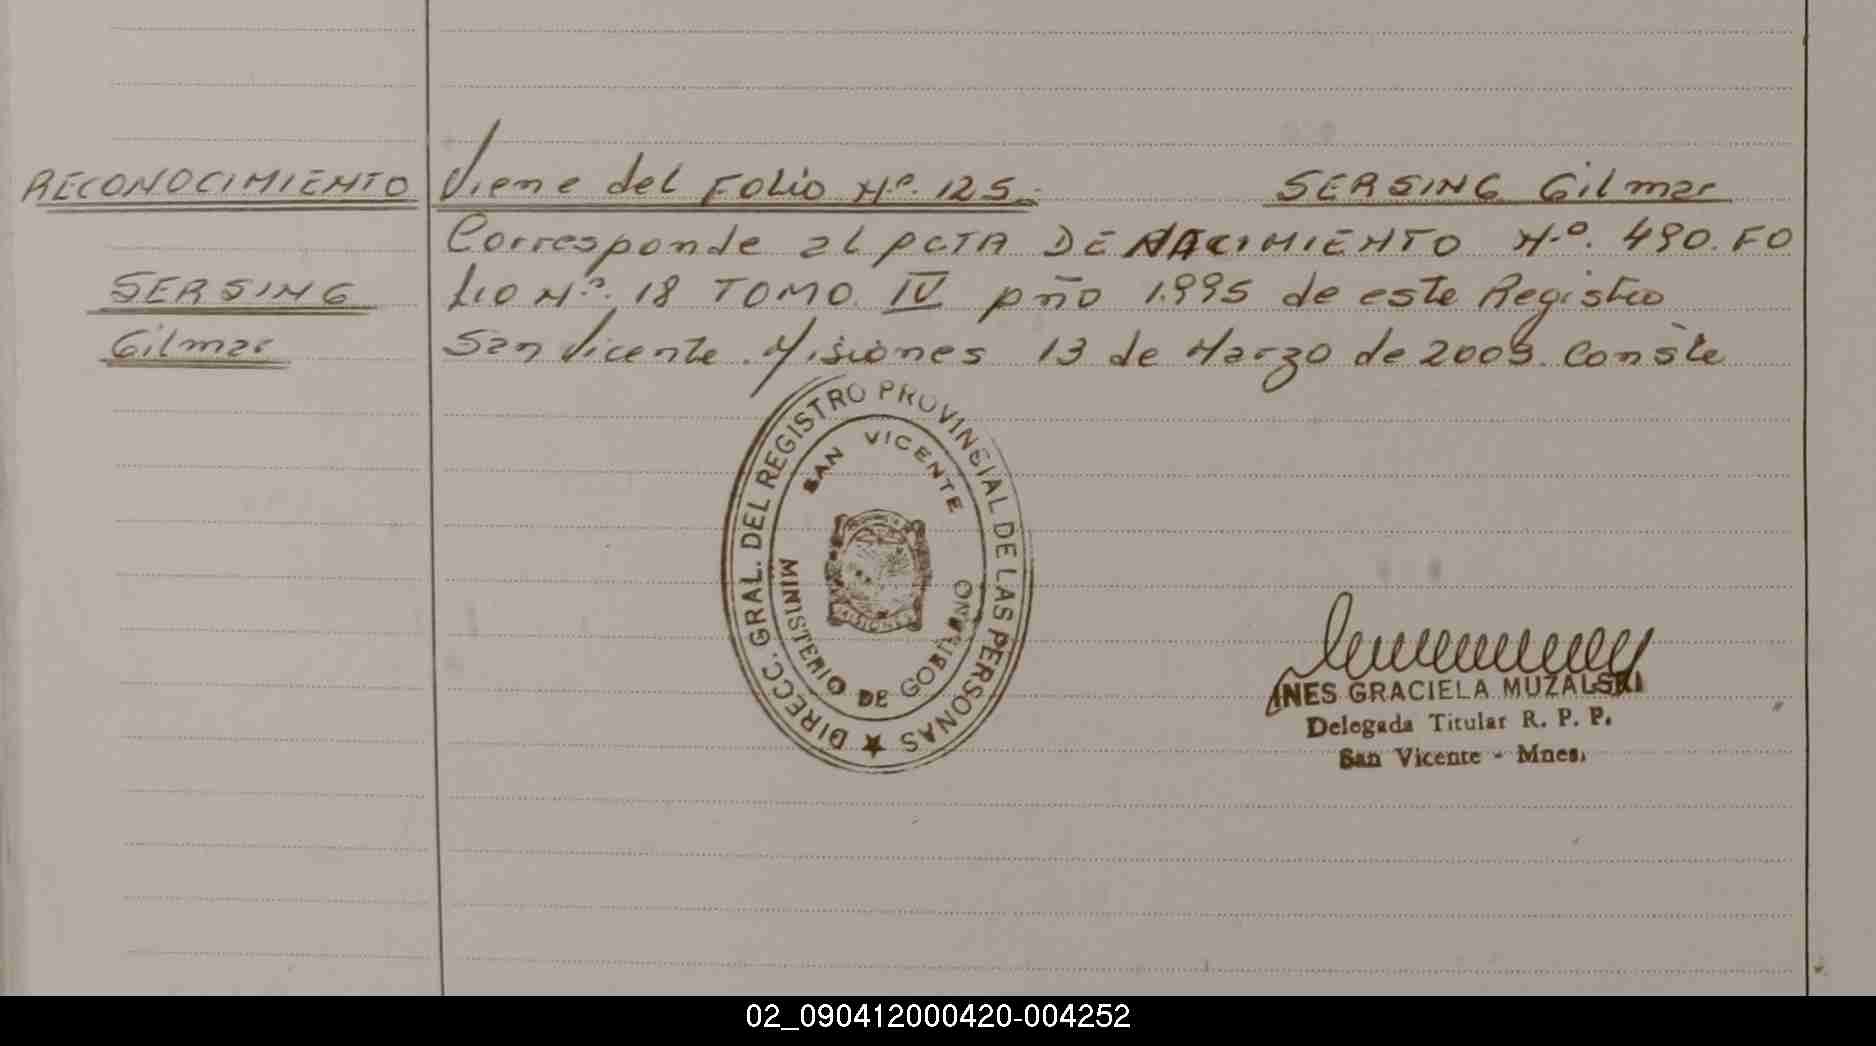 RECONOCIMIENTO
SERSING
Gilmar
Viene del FOLIO Nº. 125.- SERSING Gilmar
Corresponde al ACTA DE NACIMIENTO Nº. 490. FO
LIO Nº. 18 TOMO IV Año 1.995 de este Registro
San Vicente. Misiones 13 de Marzo de 2009. Conste
DIRECC. GRAL. DEL REGISTRO PROVINCIAL DE LAS PERSONAS
SAN VICENTE
MISIONES
MINISTERIO DE GOBIERNO
INES GRACIELA MUZALSKI
Delegada Titular R. P. P.
San Vicente - Mnes.
02_090412000420-004252